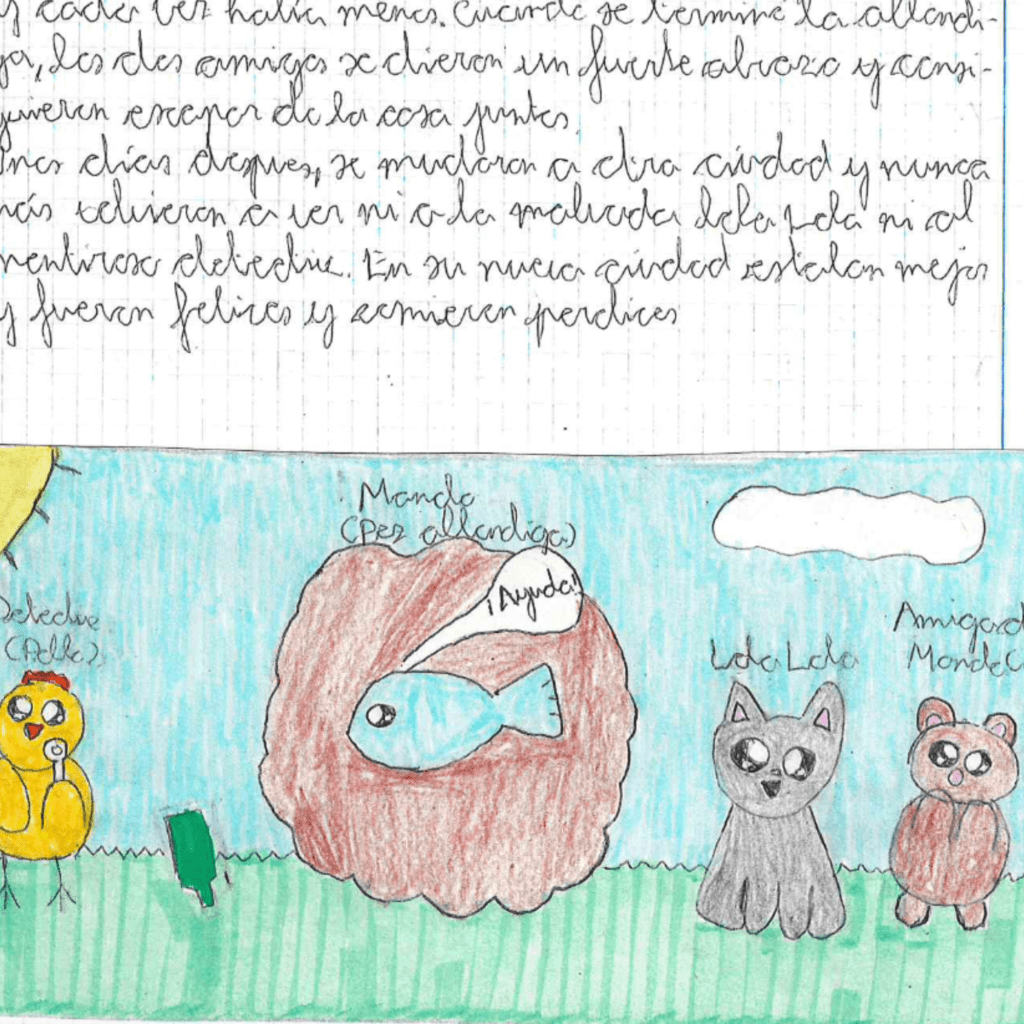 y cada vez había menos. Cuando se terminó la albondi-
ga, los dos amigos se dieron un fuerte abrazo y consi-
guieron escapar de la casa juntos.
nos días depues, se mudaron a otra ciudad y nunca
más volvieron a ver ni a la malvada Lola Lola ni al
mentiroso detective. En su nueva ciudad estaban mejor
y fueron felices y comieron perdices
Mando
(Pez albondiga)
¡Ayuda!
Detective
(Pollo)
Lola Lola
Amiga de
Mando